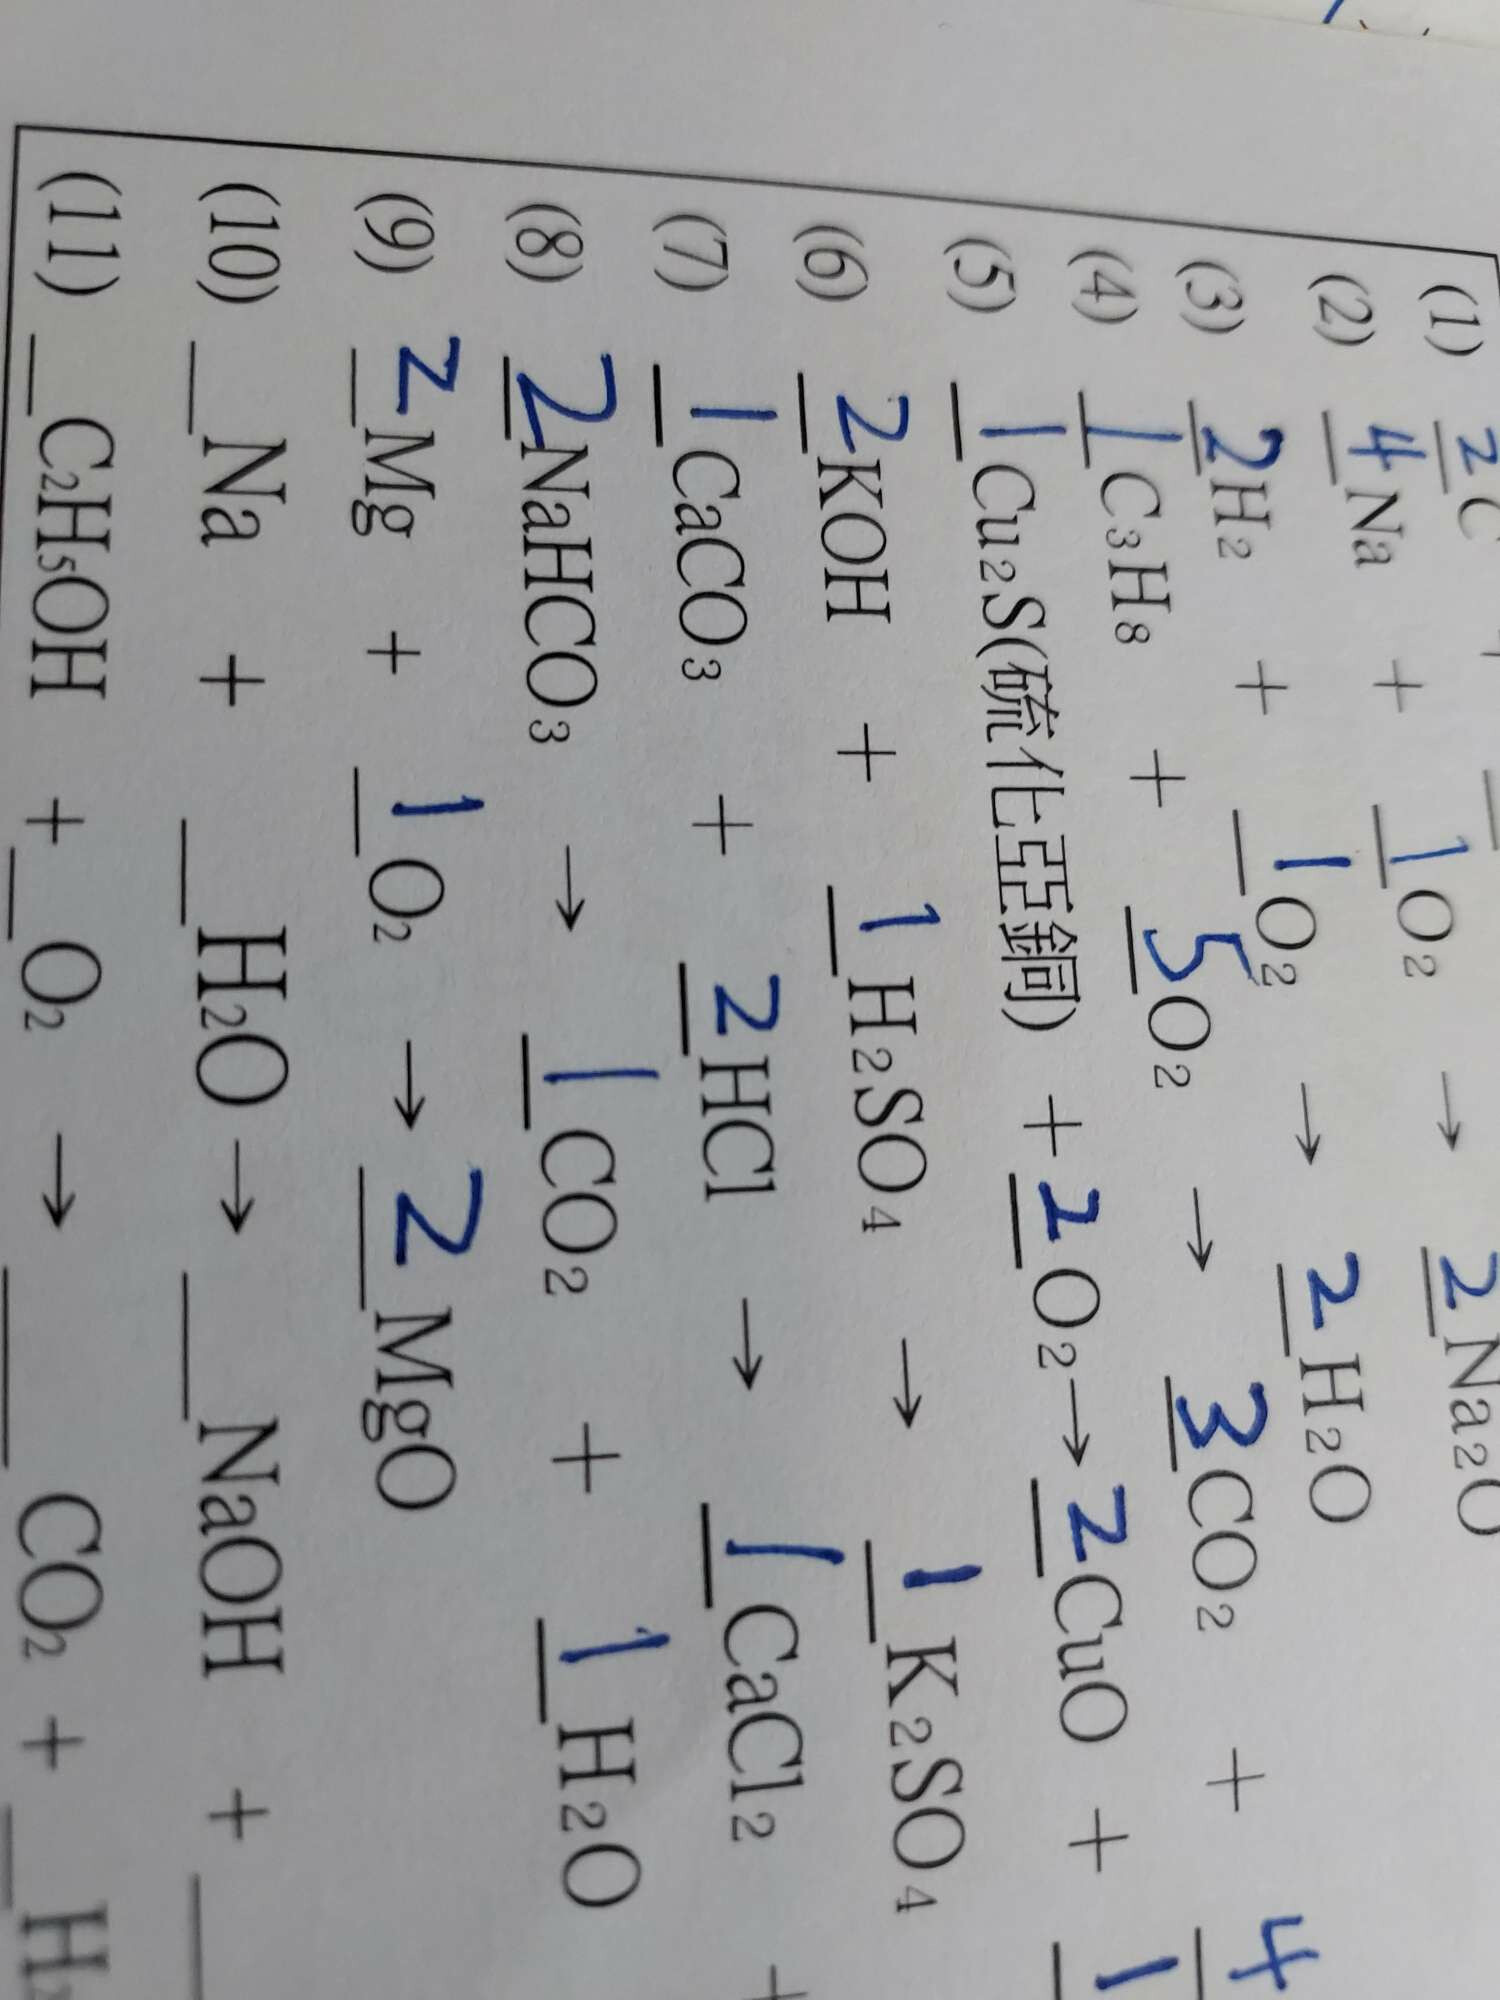 (1) 2C +
(2) 4Na + 1O₂ → 2Na₂O
(3) 2H₂ + 1O₂ → 2H₂O
(4) 1C₃H₈ + 5O₂ → 3CO₂ + 4
(5) 1Cu₂S(硫化亞銅) + 2O₂→ 2CuO + 1
(6) 2KOH + 1H₂SO₄ → 1K₂SO₄ +
(7) 1CaCO₃ + 2HCl → 1CaCl₂
(8) 2NaHCO₃ → 1CO₂ + 1H₂O
(9) 2Mg + 1O₂ → 2MgO
(10) _Na + _H₂O → _NaOH + _
(11) _C₂H₅OH + _O₂ → _CO₂ + _H₂